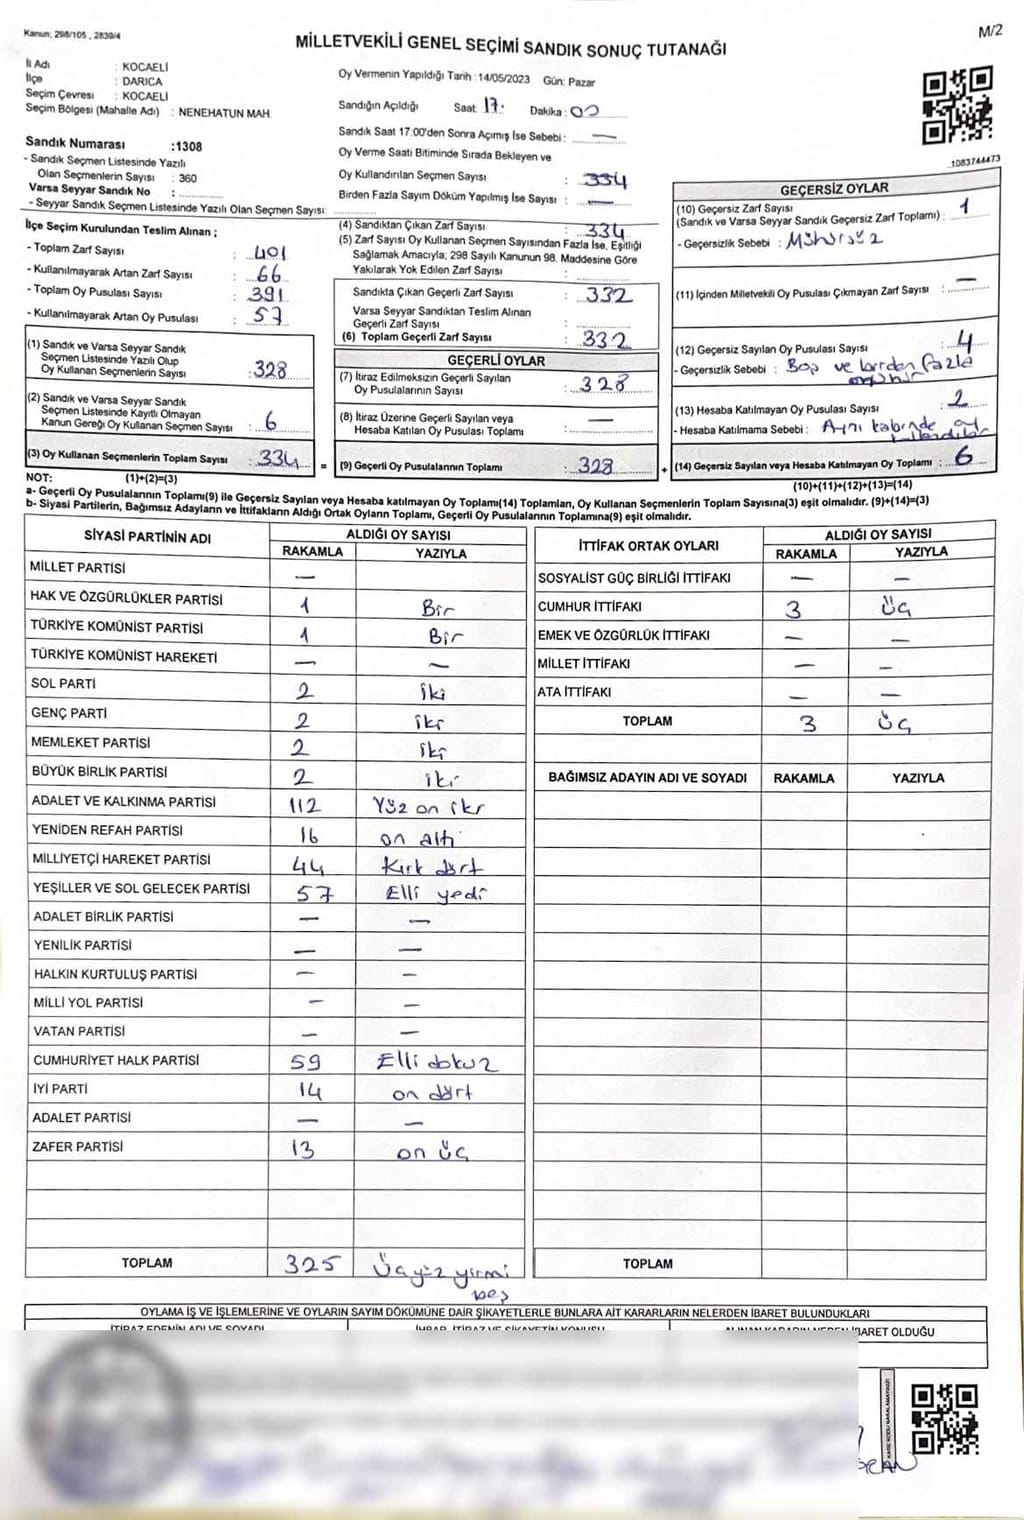 Kanun: 298/105 , 2839/4
M/2
MİLLETVEKİLİ GENEL SEÇİMİ SANDIK SONUÇ TUTANAĞI
İl Adı : KOCAELİ
İlçe : DARICA
Seçim Çevresi : KOCAELİ
Seçim Bölgesi (Mahalle Adı) : NENEHATUN MAH.
Sandık Numarası :1308
- Sandık Seçmen Listesinde Yazılı
Olan Seçmenlerin Sayısı : 360
Varsa Seyyar Sandık No :
- Seyyar Sandık Seçmen Listesinde Yazılı Olan Seçmen Sayısı:
Oy Vermenin Yapıldığı Tarih :14/05/2023 Gün: Pazar
Sandığın Açıldığı Saat: 17. Dakika: 00
Sandık Saat 17.00'den Sonra Açımış İse Sebebi : —
Oy Verme Saati Bitiminde Sırada Bekleyen ve
Oy Kullandırılan Seçmen Sayısı : 334
Birden Fazla Sayım Döküm Yapılmış İse Sayısı : —
1083744473
İlçe Seçim Kurulundan Teslim Alınan ;
- Toplam Zarf Sayısı : 401
- Kullanılmayarak Artan Zarf Sayısı : 66
- Toplam Oy Pusulası Sayısı : 391
- Kullanılmayarak Artan Oy Pusulası : 57
(1) Sandık ve Varsa Seyyar Sandık
Seçmen Listesinde Yazılı Olup
Oy Kullanan Seçmenlerin Sayısı : 328
(2) Sandık ve Varsa Seyyar Sandık
Seçmen Listesinde Kayıtlı Olmayan
Kanun Gereği Oy Kullanan Seçmen Sayısı : 6
(3) Oy Kullanan Seçmenlerin Toplam Sayısı : 334 =
(4) Sandıktan Çıkan Zarf Sayısı : 334
(5) Zarf Sayısı Oy Kullanan Seçmen Sayısından Fazla İse, Eşitliği
Sağlamak Amacıyla; 298 Sayılı Kanunun 98. Maddesine Göre
Yakılarak Yok Edilen Zarf Sayısı :
Sandıkta Çıkan Geçerli Zarf Sayısı : 332
Varsa Seyyar Sandıktan Teslim Alınan
Geçerli Zarf Sayısı :
(6) Toplam Geçerli Zarf Sayısı : 332
GEÇERLİ OYLAR
(7) İtiraz Edilmeksizin Geçerli Sayılan
Oy Pusulalarının Sayısı : 328
(8) İtiraz Üzerine Geçerli Sayılan veya
Hesaba Katılan Oy Pusulası Toplamı : —
(9) Geçerli Oy Pusulalarının Toplamı : 328 +
GEÇERSİZ OYLAR
(10) Geçersiz Zarf Sayısı
(Sandık ve Varsa Seyyar Sandık Geçersiz Zarf Toplamı) : 1
- Geçersizlik Sebebi : Mühürsüz
(11) İçinden Milletvekili Oy Pusulası Çıkmayan Zarf Sayısı : —
(12) Geçersiz Sayılan Oy Pusulası Sayısı : 4
- Geçersizlik Sebebi : Boş ve birden fazla
mühür
(13) Hesaba Katılmayan Oy Pusulası Sayısı : 2
- Hesaba Katılmama Sebebi : Aynı kabinde oy
(14) Geçersiz Sayılan veya Hesaba Katılmayan Oy Toplamı : 6
NOT: (1)+(2)=(3)
(10)+(11)+(12)+(13)=(14)
a- Geçerli Oy Pusulalarının Toplamı(9) ile Geçersiz Sayılan veya Hesaba katılmayan Oy Toplamı(14) Toplamları, Oy Kullanan Seçmenlerin Toplam Sayısına(3) eşit olmalıdır. (9)+(14)=(3)
b- Siyasi Partilerin, Bağımsız Adayların ve İttifakların Aldığı Ortak Oyların Toplamı, Geçerli Oy Pusulalarının Toplamına(9) eşit olmalıdır.
SİYASİ PARTİNİN ADI ALDIĞI OY SAYISI
RAKAMLA YAZIYLA
MİLLET PARTİSİ —
HAK VE ÖZGÜRLÜKLER PARTİSİ 1 Bir
TÜRKİYE KOMÜNİST PARTİSİ 1 Bir
TÜRKİYE KOMÜNİST HAREKETİ — —
SOL PARTİ 2 iki
GENÇ PARTİ 2 iki
MEMLEKET PARTİSİ 2 iki
BÜYÜK BİRLİK PARTİSİ 2 iki
ADALET VE KALKINMA PARTİSİ 112 Yüz on iki
YENİDEN REFAH PARTİSİ 16 on altı
MİLLİYETÇİ HAREKET PARTİSİ 44 Kırk dört
YEŞİLLER VE SOL GELECEK PARTİSİ 57 Elli yedi
ADALET BİRLİK PARTİSİ — —
YENİLİK PARTİSİ — —
HALKIN KURTULUŞ PARTİSİ — —
MİLLİ YOL PARTİSİ — —
VATAN PARTİSİ — —
CUMHURİYET HALK PARTİSİ 59 Elli dokuz
İYİ PARTİ 14 on dört
ADALET PARTİSİ — —
ZAFER PARTİSİ 13 on üç
TOPLAM 325 Üçyüz yirmi
beş
İTTİFAK ORTAK OYLARI ALDIĞI OY SAYISI
RAKAMLA YAZIYLA
SOSYALİST GÜÇ BİRLİĞİ İTTİFAKI — —
CUMHUR İTTİFAKI 3 Üç
EMEK VE ÖZGÜRLÜK İTTİFAKI — —
MİLLET İTTİFAKI — —
ATA İTTİFAKI — —
TOPLAM 3 üç
BAĞIMSIZ ADAYIN ADI VE SOYADI RAKAMLA YAZIYLA
TOPLAM
OYLAMA İŞ VE İŞLEMLERİNE VE OYLARIN SAYIM DÖKÜMÜNE DAİR ŞİKAYETLERLE BUNLARA AİT KARARLARIN NELERDEN İBARET BULUNDUKLARI
İTİRAZ EDENİN ADI VE SOYADI İHBAR, İTİRAZ VE ŞİKAYETİN KONUSU ALINAN KARARIN NEDEN İBARET OLDUĞU